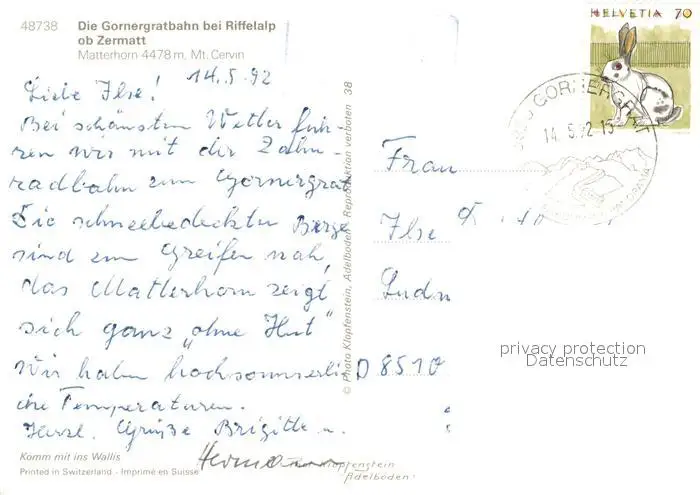 48738 Die Gornergratbahn bei Riffelalp
ob Zermatt
Matterhorn 4478 m, Mt. Cervin
14.5.92
Liebe Ilse!
Bei schönsten Wetter fuh-
ren wir mit der Zahn-
radbahn zum Gornergrat
Die schneebedeckten Berge
sind zum Greifen nah,
das Matterhorn zeigt
sich ganz „ohne Hut"
Wir haben hochsommerli
che Temperaturen.
Herzl. Grüße Brigitte u.
Hermann
Komm mit ins Wallis
Printed in Switzerland - Imprimé en Suisse
© Photo Klopfenstein, Adelboden Reproduktion verboten 38
Klopfenstein
Adelboden
HELVETIA 70
GORNERGRAT
14.5.92-15
Frau
Ilse
D 8510
privacy protection
Datenschutz